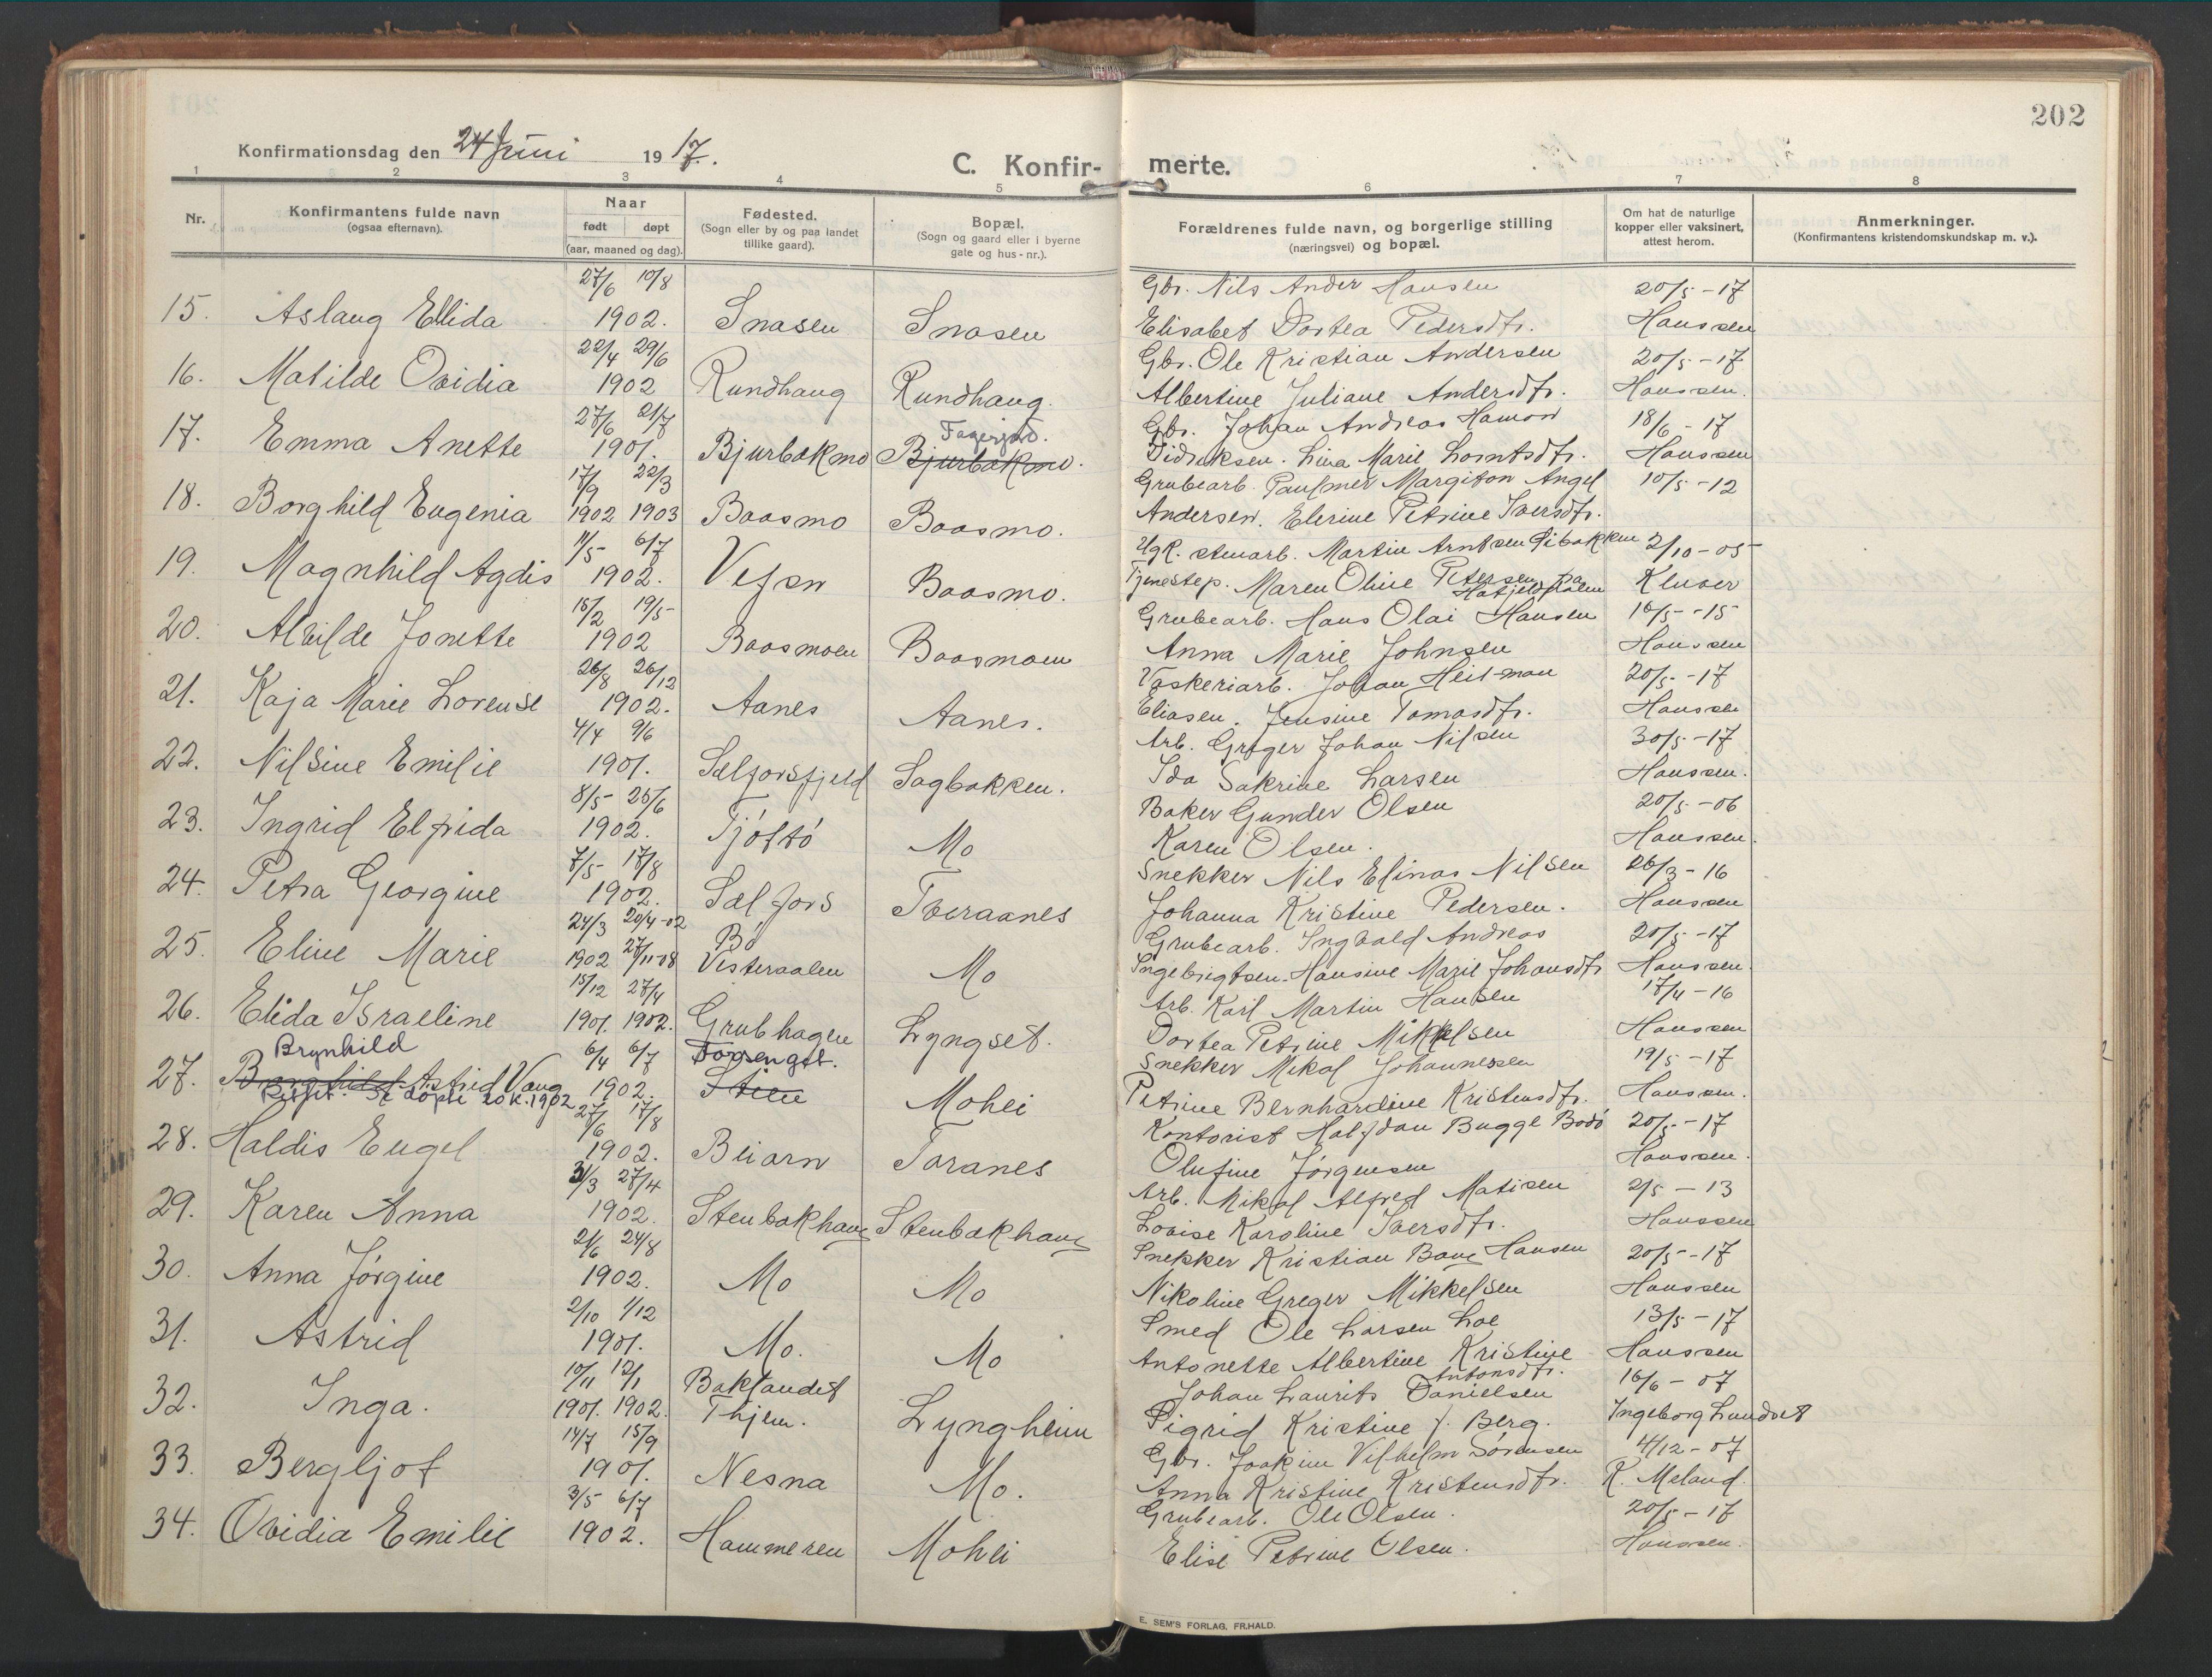 202
Konfirmationsdag den 24 Juni 1917.
C. Konfir- merte.
1 2 3 4 5 6 7 8
Nr.
Konfirmantens fulde navn
(ogsaa efternavn).
Naar
født døpt
(aar, maaned og dag).
Fødested.
(Sogn eller by og paa landet
tillike gaard).
Bopæl.
(Sogn og gaard eller i byerne
gate og hus-nr.).
Forældrenes fulde navn, og borgerlige stilling
(næringsvei) og bopæl.
Om hat de naturlige
kopper eller vaksinert,
attest herom.
Anmerkninger.
(Konfirmantens kristendomskundskap m. v.).
27/6 10/8 Gbr. Nils Ander Hansen 20/5-17
15. Aslaug Ellida 1902. Snasen Snasen Elisabet Dortea Pedersdtr. Hanssen
22/4 29/6 Gbr. Ole Kristian Andersen 20/5-17
16. Matilde Ovidia 1902 Rundhaug Rundhaug. Albertine Juliane Andersdtr. Hanssen.
27/6 21/7 Gbr. Johan Andreas Hamon 18/6-17
17. Emma Anette 1901. Bjurbækmo Bjurbækmo. Didriksen. Lina Marie Lorntsdtr. Hanssen
17/9 22/3 Grubearb. Paul Margiton Angel 10/5-12
18. Borghild Eugenia 1902 1903 Baasmo Baasmo. Andersen. Elerine Petrine Iversdtr.
11/5 6/7 Ugk. stenarb. Martin Arntsen 2/10-05
19. Magnhild Agdis 1902. Vefsn Baasmo. Tjenestep. Maren Oline Petersen paa Kluver
18/2 19/5 Grubearb. Hans Olai Hansen 10/5-15
20. Alvilde Jonette 1902 Baasmoen Baasmoen Anna Marie Johnsen Hanssen
26/8 26/12 Vaskeriarb. Johan Heitman 20/5-17
21. Kaja Marie Lorense 1902. Aanes Aanes. Eliasen. Jensine Tomasdtr. Hanssen
4/4 9/6 Arb. Greger Johan Nilsen 30/5-17
22. Nilsine Emilie 1901. Selforsfjeld Sagbakken. Ida Sakrine Larsen Hanssen.
8/5 25/6 Baker Gunder Olsen 20/5-06
23. Ingrid Elfrida 1902. Tjøttø Mo Karen Olsen. Hanssen.
7/5 17/8 Snekker Nils Elinas Nilsen 26/3-16
24. Petra Georgine 1902. Selfors Tveraanes Johanna Kristine Pedersen. Hanssen
24/3 20/4-02 Bø Grubearb. Ingvald Andreas 20/5-17
25. Eline Marie 1902 27/11-08 Vesteraalen Mo Ingebrigtsen. Hansine Marie Johansdtr. Hanssen.
15/12 27/4 Arb. Karl Martin Hansen 17/4-16
26. Elida Israeline 1901. 1902. Grubhagen Lyngset. Dortea Petrine Mikkelsen Hanssen
Brynhild 6/4 6/7 Forsenget. Snekker Mikal Johannessen 19/5-17
27. Borghild Astrid Vang 1902. Stien Mohei Petrine Bernhardine Kristensdtr. Hanssen.
27/6 17/8 Kontorist Halfdan Bugge Bodø 20/5-17
28. Haldis Engel 1902. Beiarn Toranes Olufine Jørgensen Hanssen.
31/3 27/4 Arb. Mikal Alfred Matisen 2/5-13
29. Karen Anna 1902. Stenbækhaug Stenbækhaug Lovise Karoline Iversdtr. Hanssen
2/6 24/8 Snekker Kristian Bang Hansen 20/5-17
30. Anna Jørgine 1902. Mo Mo Nikoline Greger Mikkelsen Hanssen
2/10 1/12 Smed Ole Larsen Loe 13/5-17
31. Astrid 1901. Mo. Mo Antonette Albertine Kristine Antonsdtr. Hanssen
10/11 12/1 Baklandet Johan Laurits Danielsen 16/6-07
32. Inga. 1901. 1902. Thjem. Lyngheim Sigrid Kristine f. Berg. Ingeborg Lund
14/7 15/9 Gbr. Joakim Vilhelm Sørensen 4/12-07
33. Bergljot 1901. Nesna Mo. Anna Kristine Kristensdtr. K. Meland.
3/5 6/7 Grubearb. Ole Olsen. 20/5-17
34. Ovidia Emilie 1902. Hammeren Mohei Elise Petrine Olsen. Hanssen.
E. SEM'S FORLAG, FR.HALD.